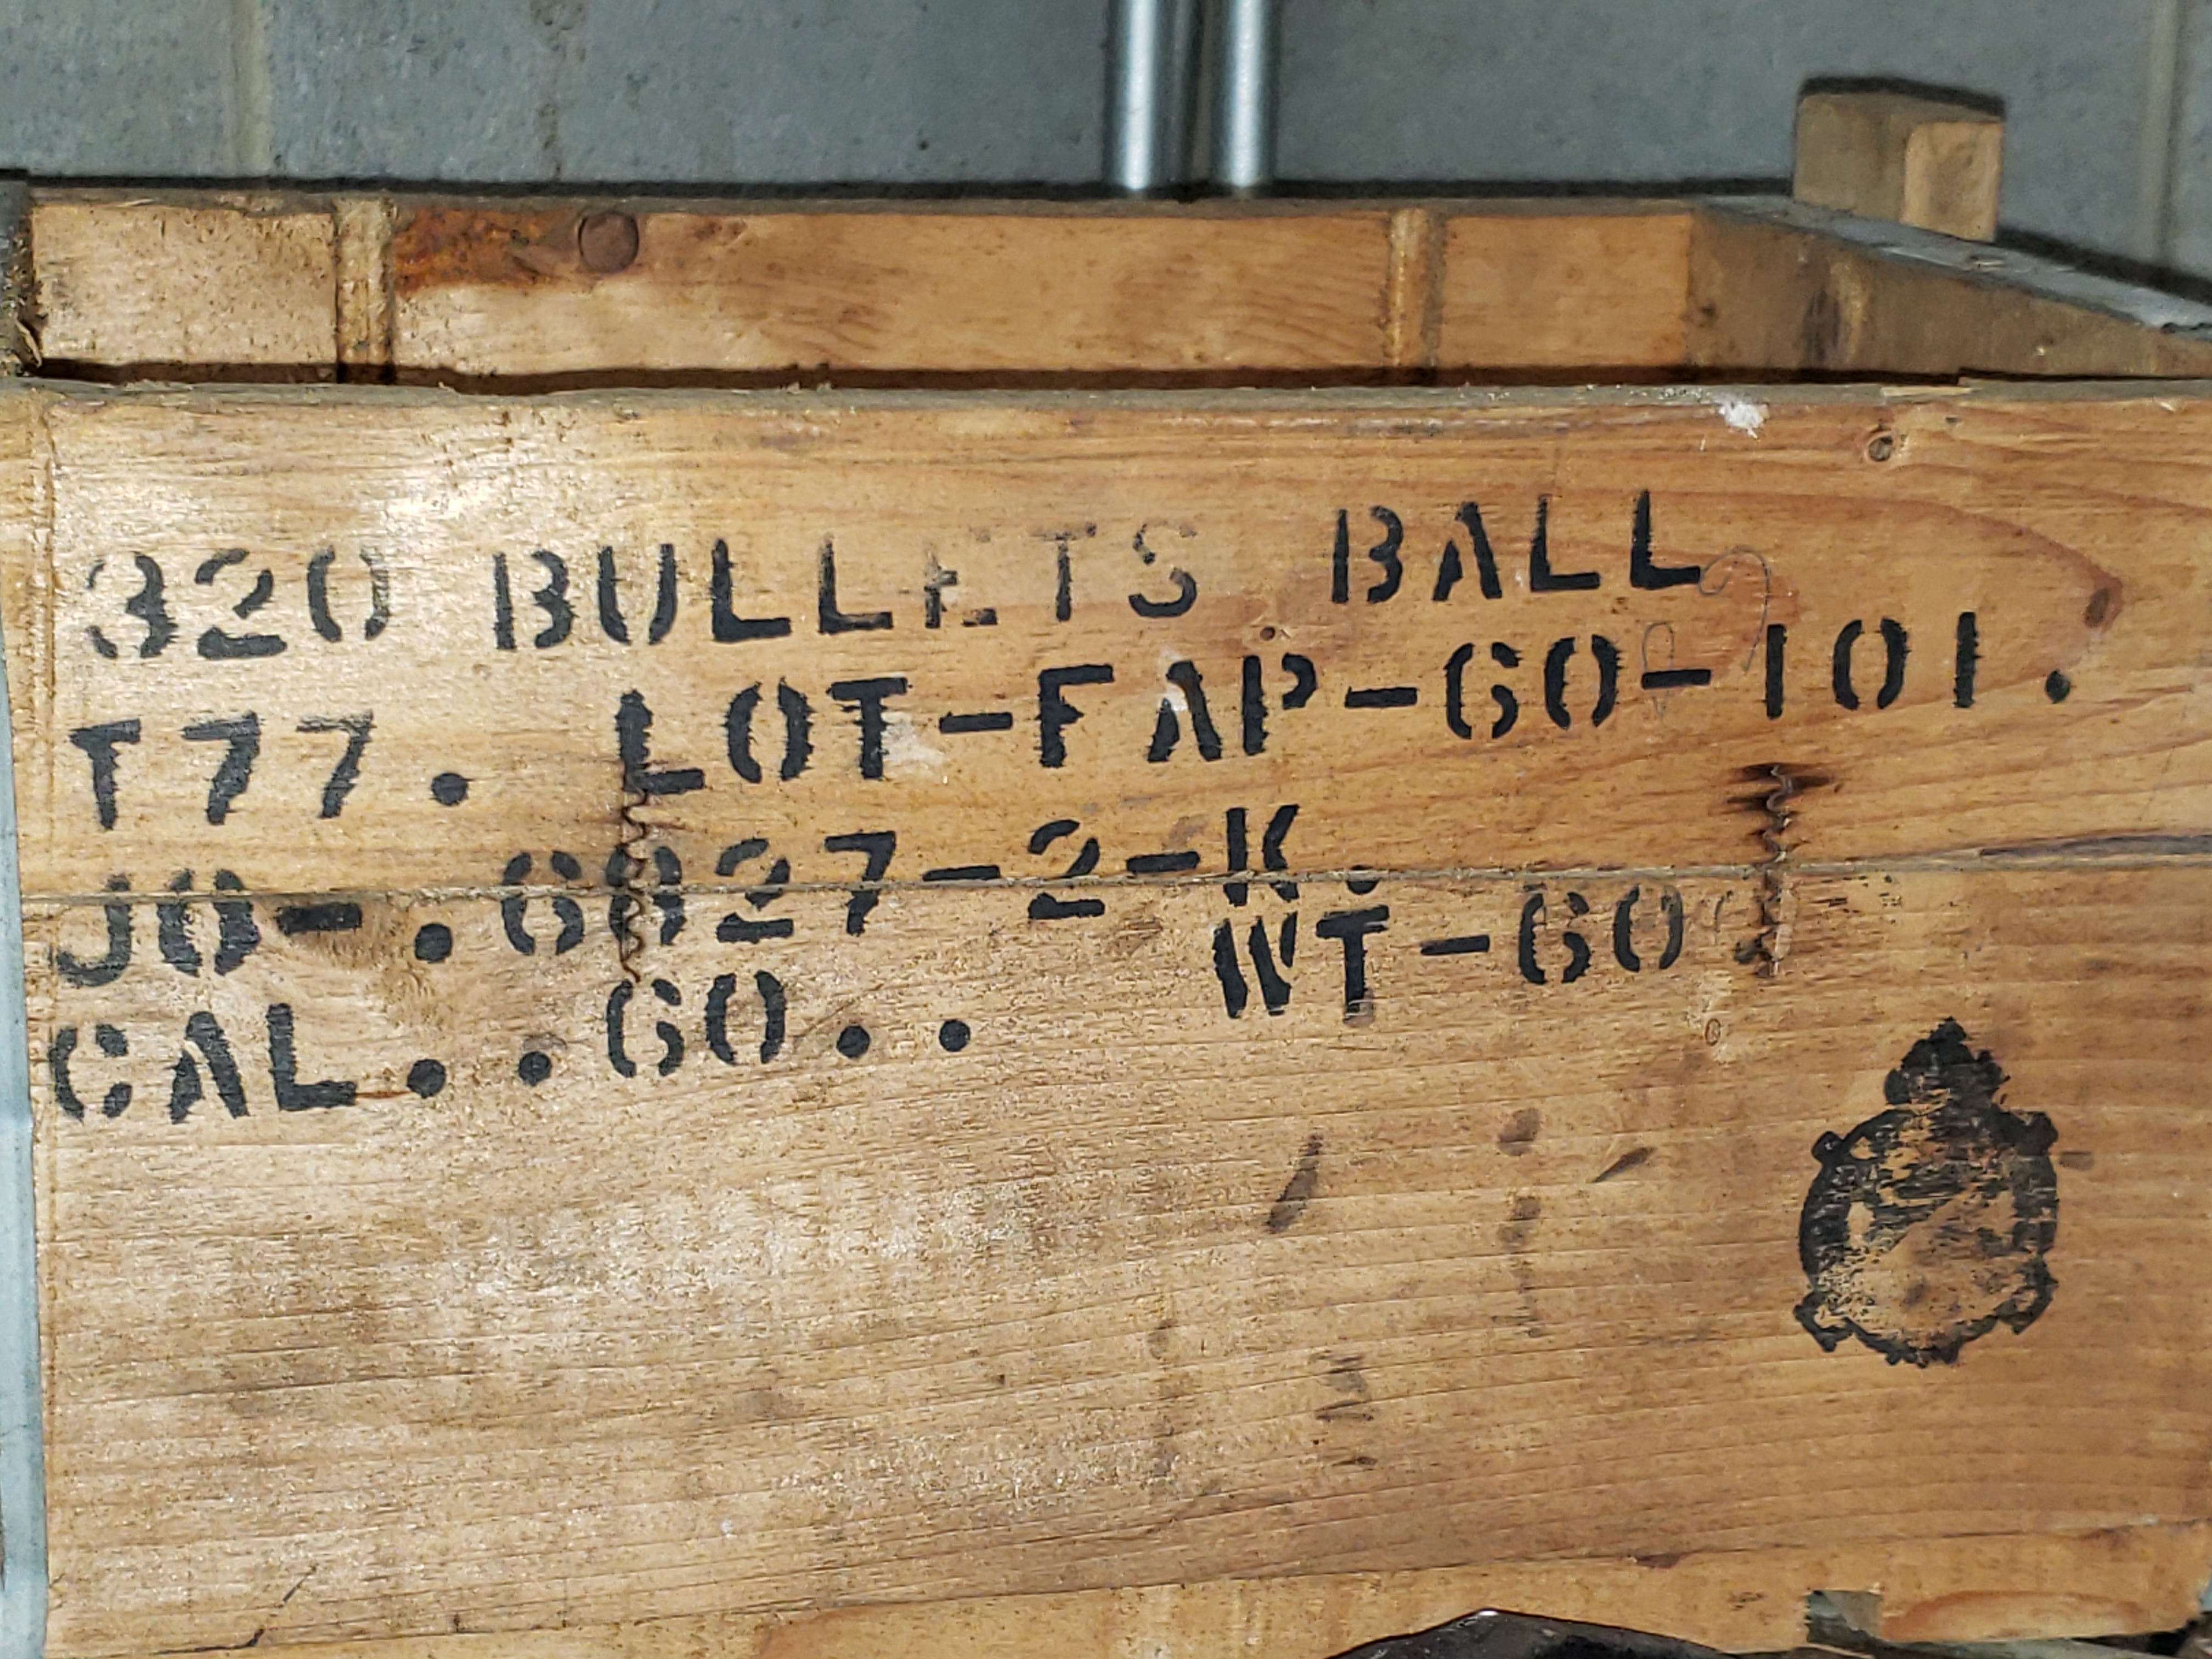 320 BULLETS BALL
T77. LOT-FAP-60-101.
J0-.6827-2-K.
CAL..60.. WT-60